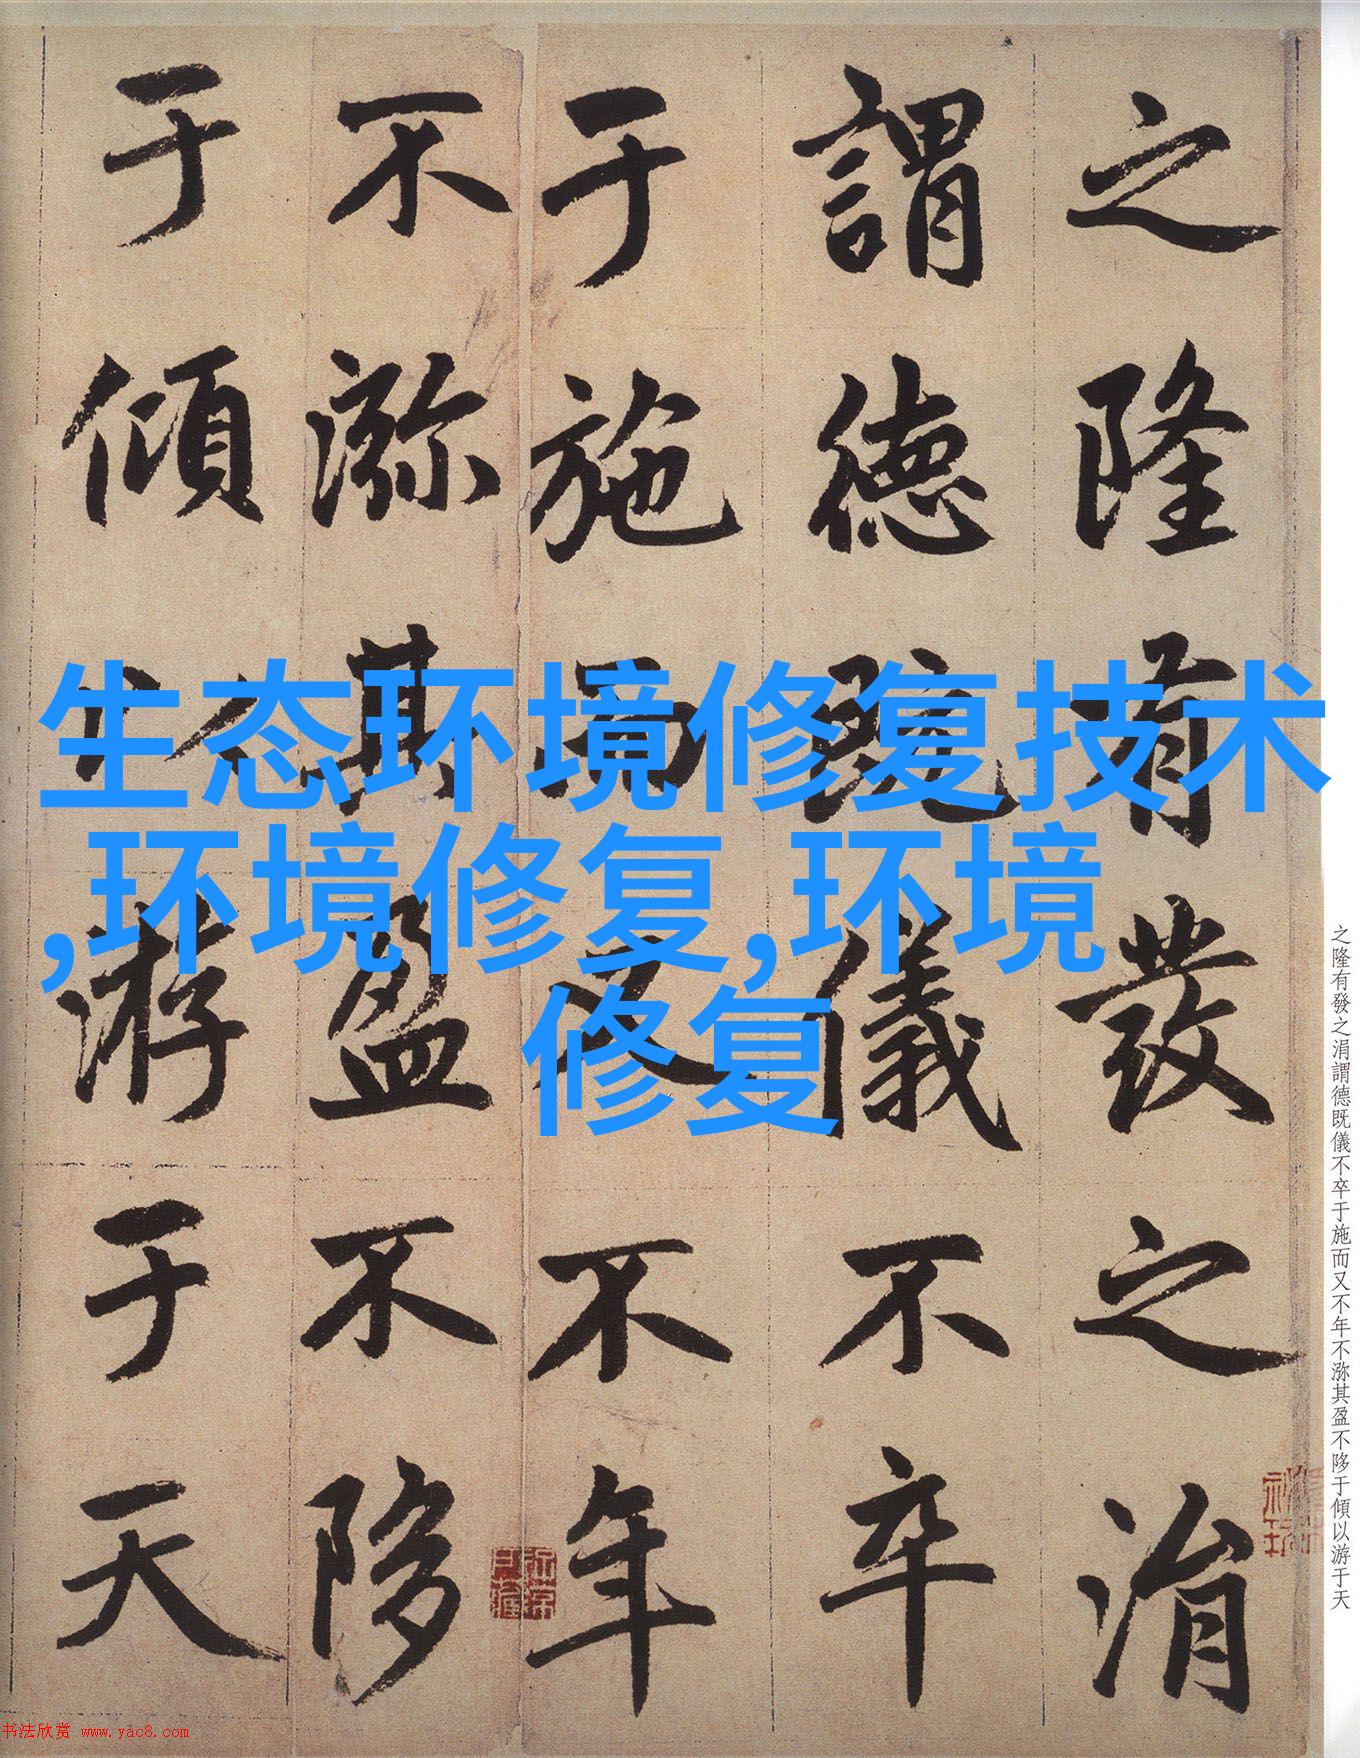 之隆有發之涓
謂德既儀不卒
于施而又不年
不㳽其盈不陊
于傾以游于天
生态环境修复技术
,环境修复,环境
修复
之隆有發之涓謂德既儀不卒于施而又不年不㳽其盈不陊于傾以游于天
书法欣赏 www.yac8.com